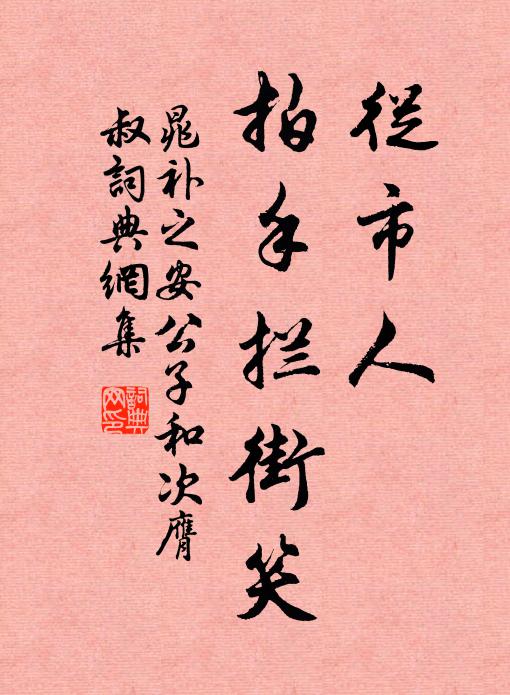 從市人
拍手拦街笑
晁补之安公子和次膺
叔詞典網集
詞典
网印